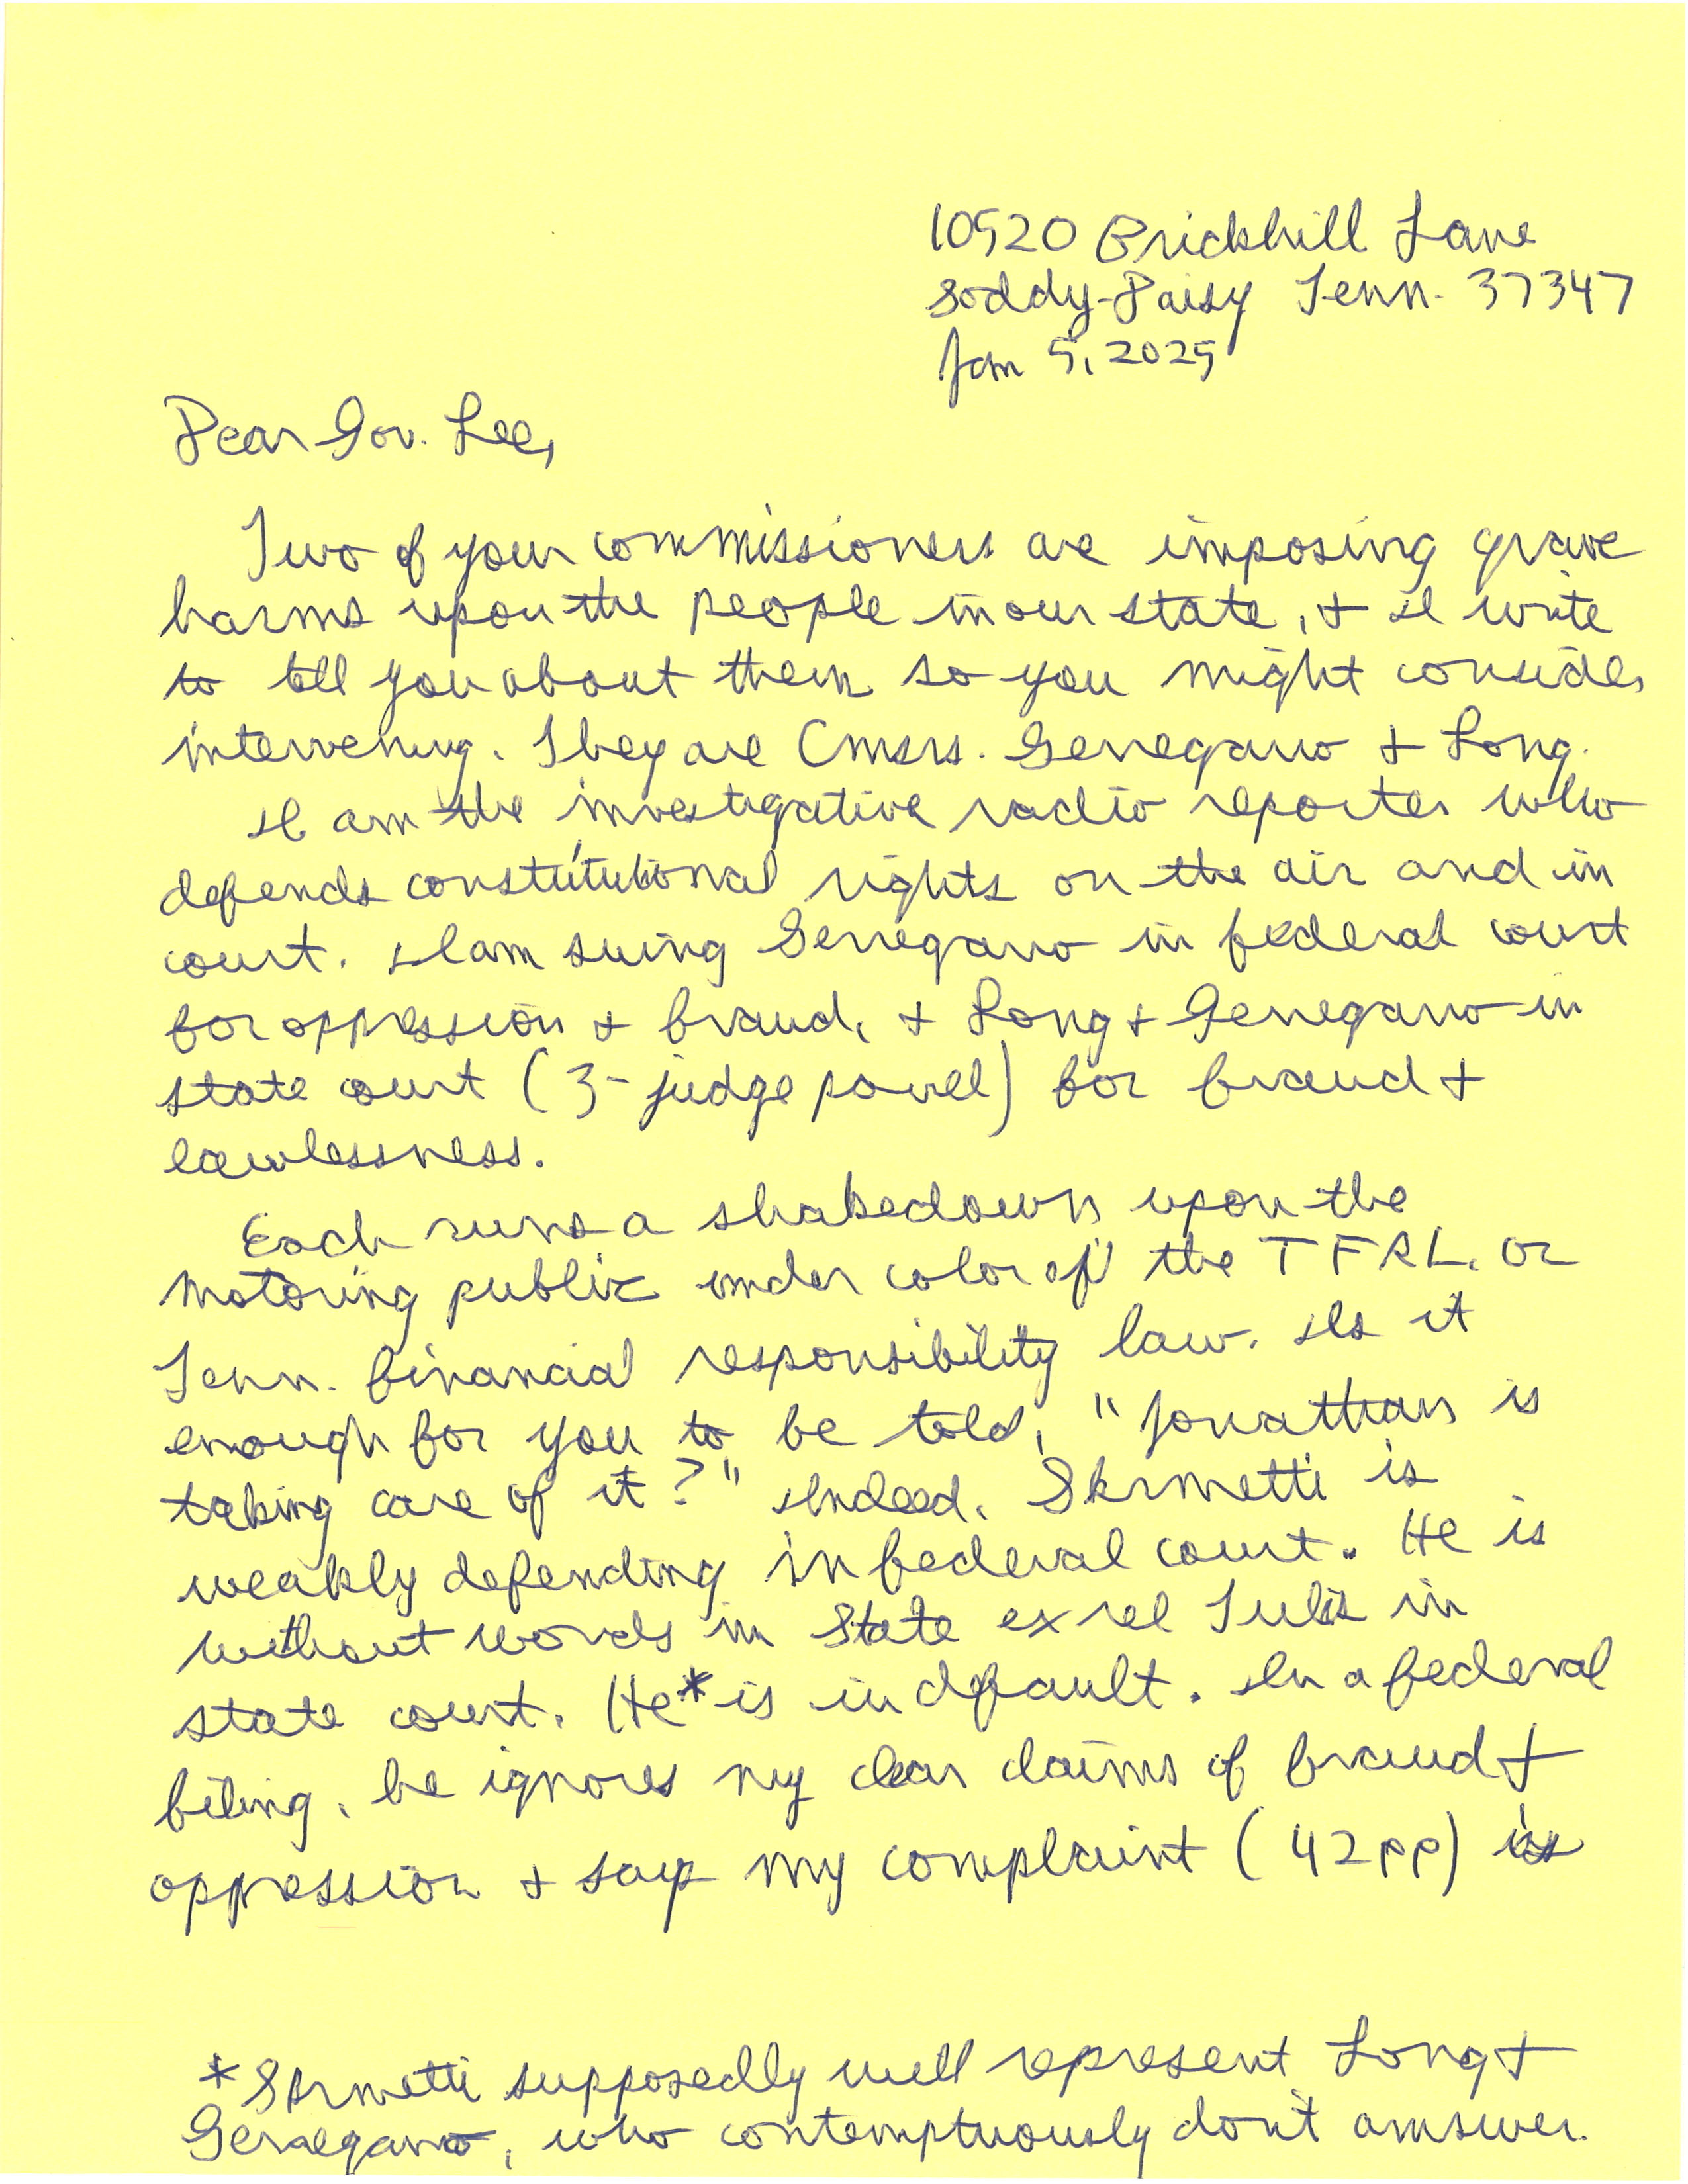 10520 Brickhill Lane
Soddy-Daisy Tenn. 37347
Jan 5, 2025
Dear Gov. Lee,
Two of your commissioners are imposing grave
harms upon the people in our state, & I write
to tell you about them so you might consider
intervening. They are Cmsrs. Gerregano & Long.
I am the investigative radio reporter who
defends constitutional rights on the air and in
court. I am suing Gerregano in federal court
for oppression & fraud, & Long & Gerregano in
state court (3-judge panel) for fraud &
lawlessness.
Each runs a shakedown upon the
motoring public under color of the TFRL, or
Tenn. financial responsibility law. Is it
enough for you to be told, "Jonathan is
taking care of it?" Indeed, Skrmetti is
weakly defending in federal court. He is
without words in State ex rel Tulis in
state court. He* is in default. In a federal
filing, he ignores my clear claims of fraud &
oppression & says my complaint (42 pp) is
*Skrmetti supposedly will represent Long &
Gerregano, who contemptuously don't answer.